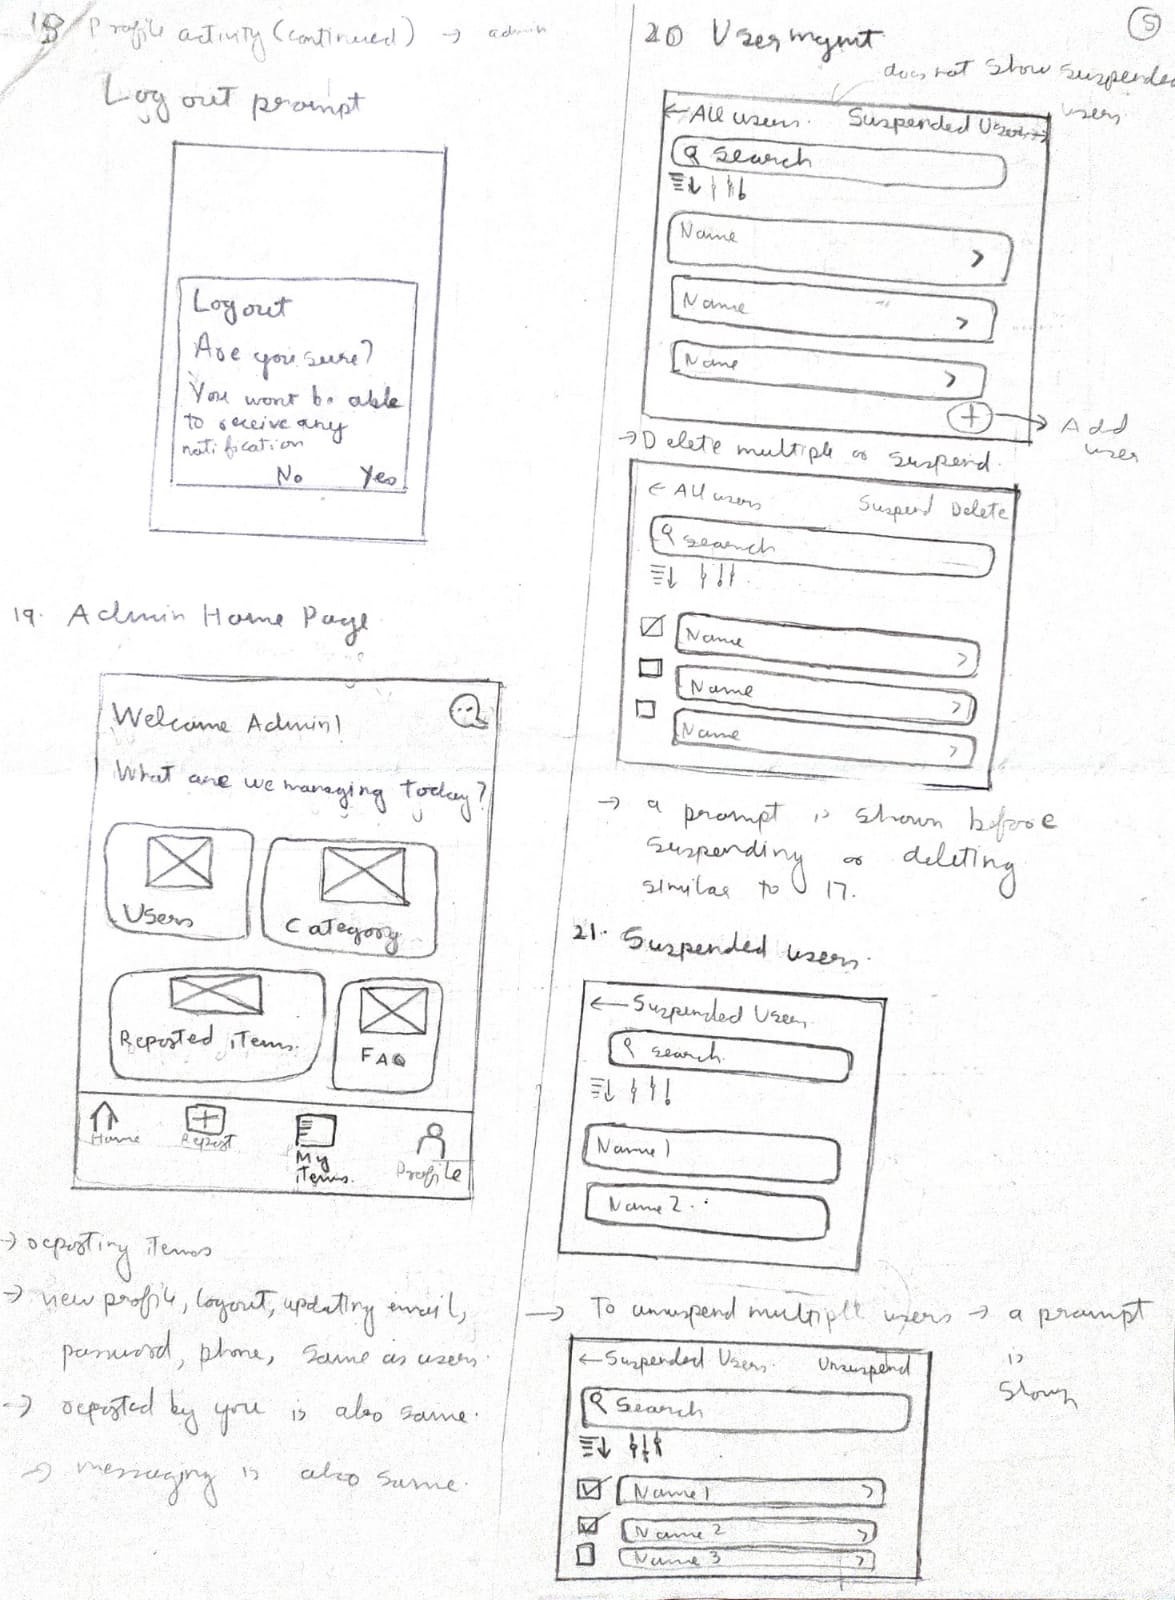 18 Profile activity (continued) → admin
Log out prompt
Log out
Are you sure?
You wont be able
to receive any
notification
No Yes
19. Admin Home Page
Welcome Admin!
What are we managing today?
Users
Category
Reported items.
FAQ
Home
Report
My
items.
Profile
→ reporting items
→ view profile, logout, updating email,
password, phone, same as users.
→ reported by you is also same.
→ messaging is also same.
5
20 User mgmt
does not show suspended
users
← All users. Suspended Users →
Search
Name >
Name >
Name >
+ → Add
user
→ Delete multiple or suspend.
← All users Suspend Delete
search
Name >
Name >
Name >
→ a prompt is shown before
suspending or deleting
similar to 17.
21. Suspended users.
← Suspended Users
search.
Name 1
Name 2..
→ To unsuspend multiple users → a prompt
is
shown
← Suspended Users. Unsuspend
Search
Name 1 >
Name 2 >
Name 3 >